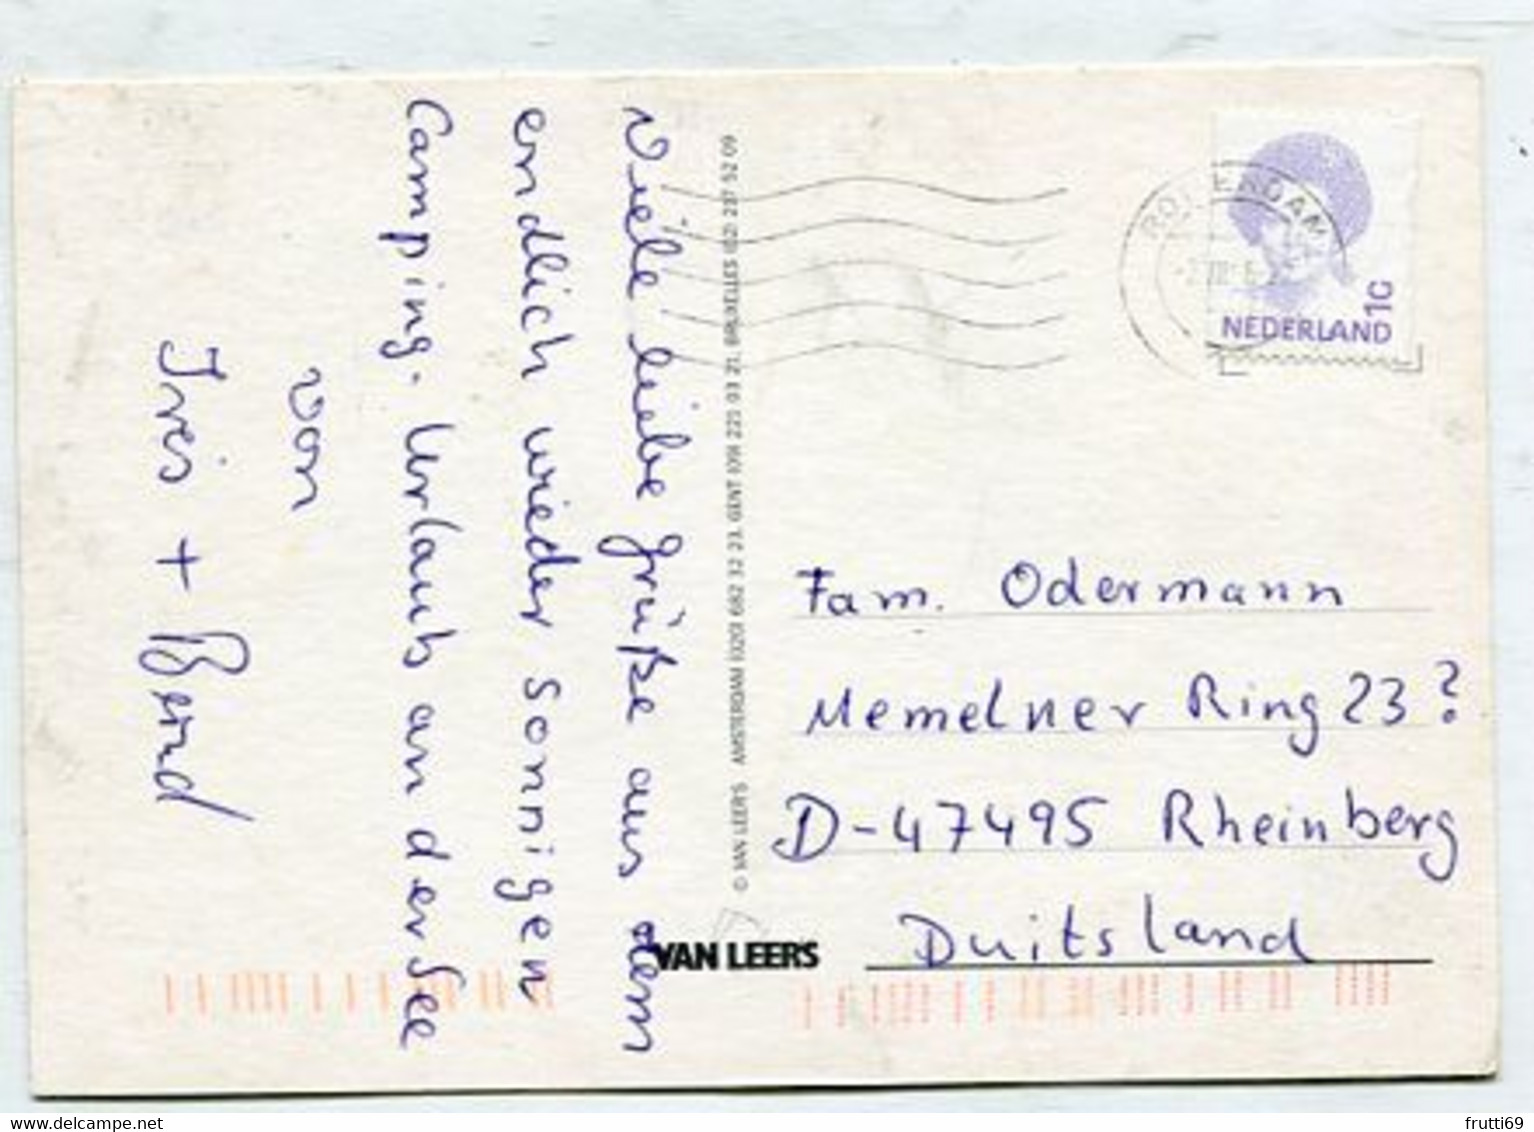 Viele liebe Grüße aus dem
endlich wieder sonnigen
Camping-Urlaub an der See
von
Iris + Bernd
© VAN LEERS AMSTERDAM (020) 692 32 23, GENT (09) 221 93 21, BRUXELLES (02) 237 52 09
VAN LEERS
ROTTERDAM
NEDERLAND
1G
Fam. Odermann
Memelner Ring 23?
D-47495 Rheinberg
Duitsland
www.delcampe.net
frutti69